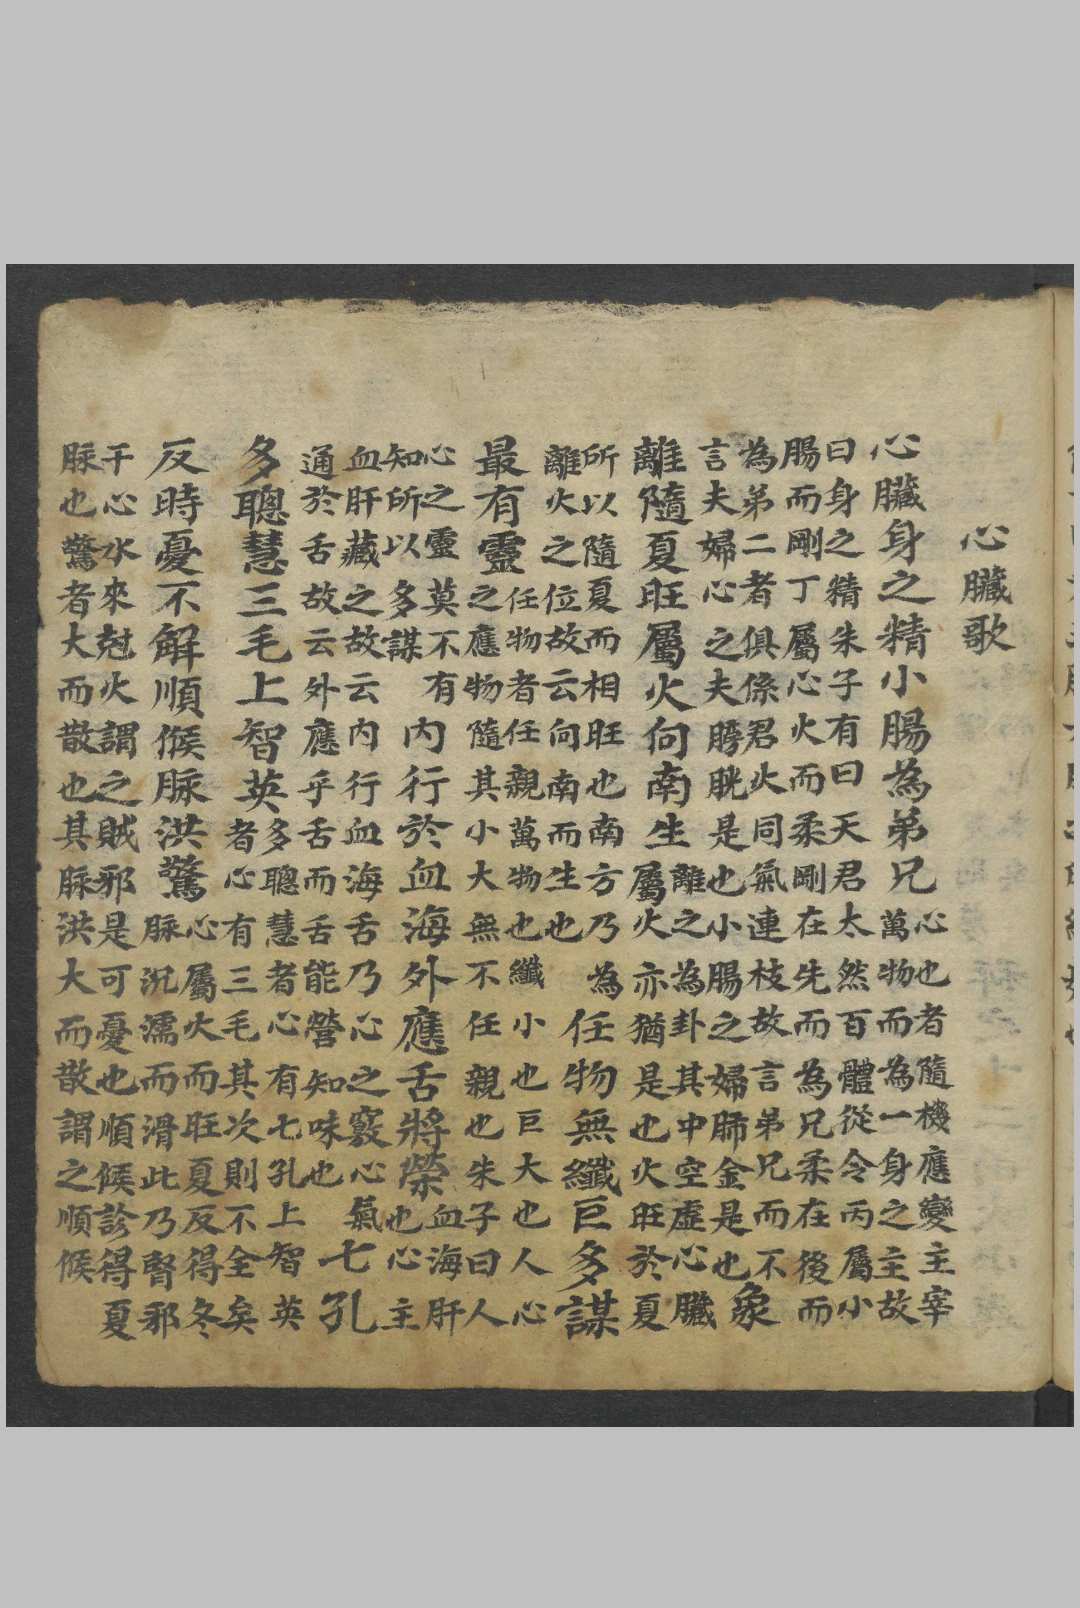 心臟歌
心臟身之精小腸為弟兄
心也者隨機應變主宰
萬物而為一身之主故
曰身之精朱子有曰天君太然百體從令丙屬小
腸而剛丁屬心火而柔剛在先而為兄柔在後而
為弟二者俱係君火同氣連枝故言弟兄而不
言夫婦心之夫膀胱是也小腸之婦肺金是也
象
離隨夏旺屬火向南生
離之為卦其中空虛心臟
屬火亦猶是也火旺於夏
所以隨夏而相旺也南方乃為
離火之位故云向南而生也
任物無纖巨多謀
最有靈
任物者任親萬物也纖小也巨大也人心
之應物隨其小大無不任親也朱子曰人
心之靈莫不有
知所以多謀
內行於血海外應舌將榮
血海肝
也心主
血肝藏之故云內行血海舌乃心之竅心氣
通於舌故云外應乎舌而舌能營知味也
七孔
多聰慧三毛上智英
多聰慧者心有七孔上智英
者心有三毛其次則不全矣
反時憂不解順候脉洪驚
心屬火而旺夏反得冬
脉沉濡而滑此乃腎邪
干心水來尅火謂之賊邪是可憂也順候診得夏
脉也驚者大而散也其脉洪大而散謂之順候